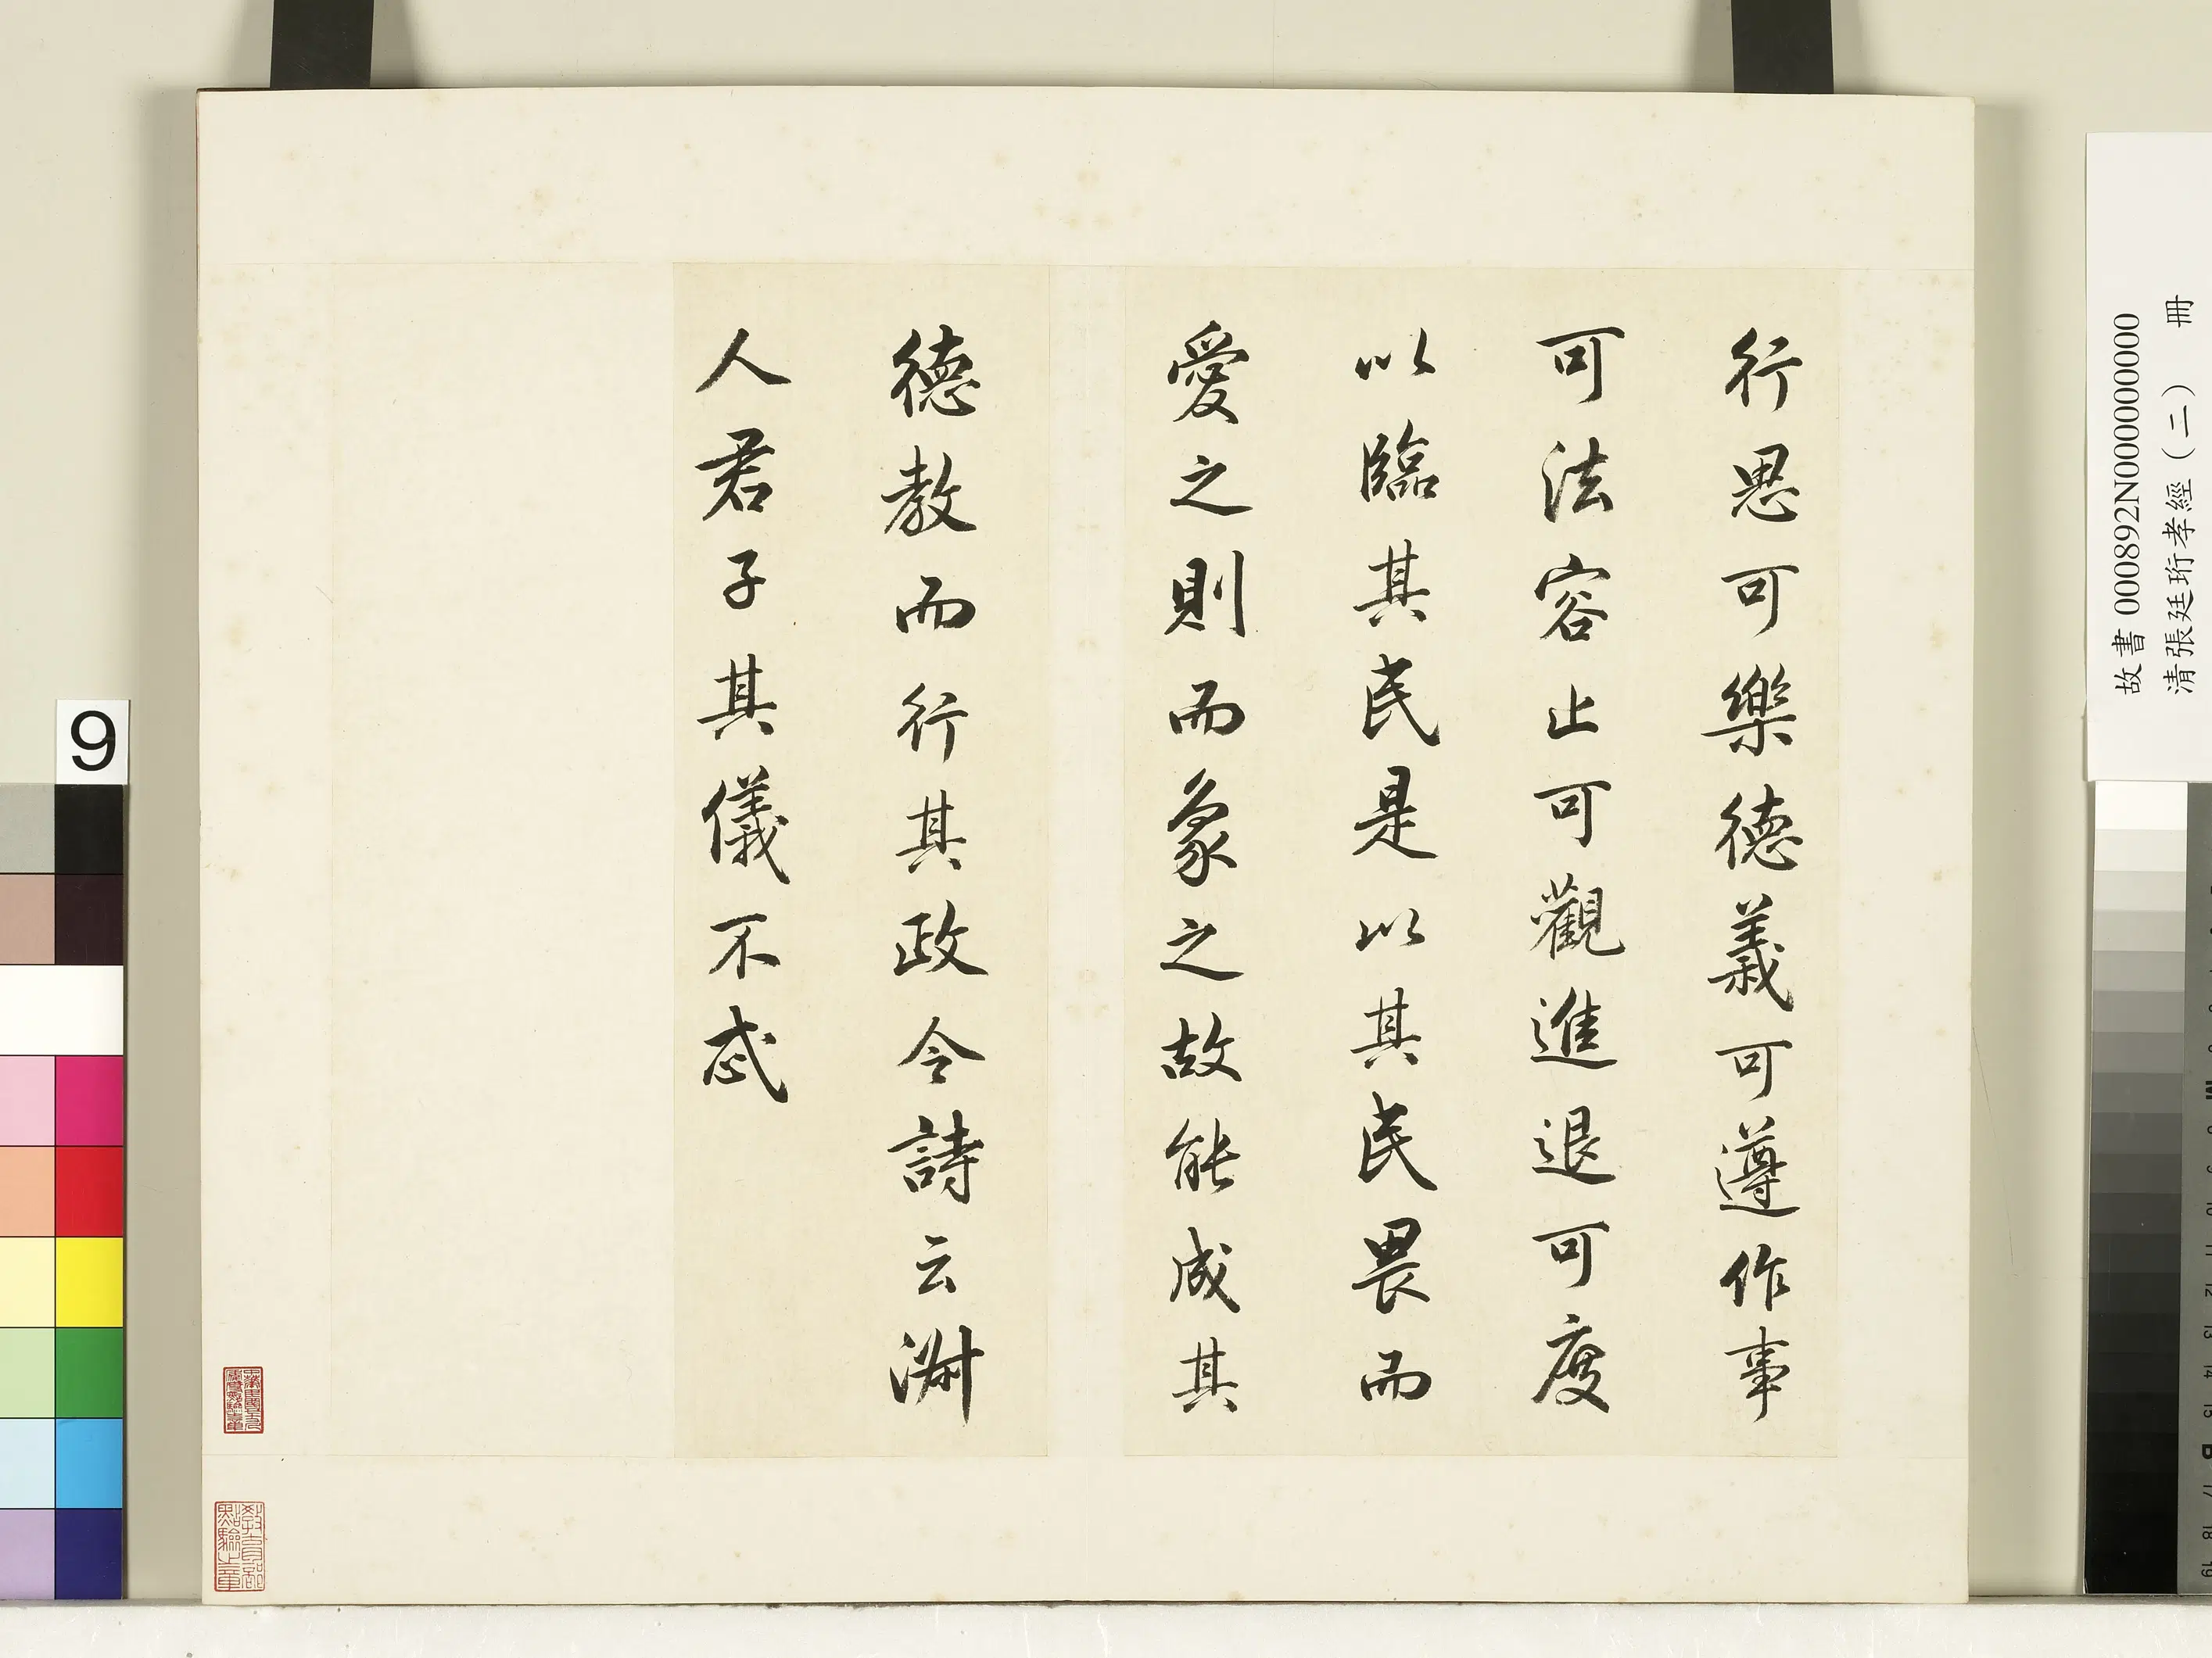 行思可樂德義可遵作事
可法容止可觀進退可度
以臨其民是以其民畏而
愛之則而象之故能成其
德教而行其政令詩云淑
人君子其儀不忒
故書000892N000000000
清張廷珩孝經(二) 冊
9
教育部
點驗之章